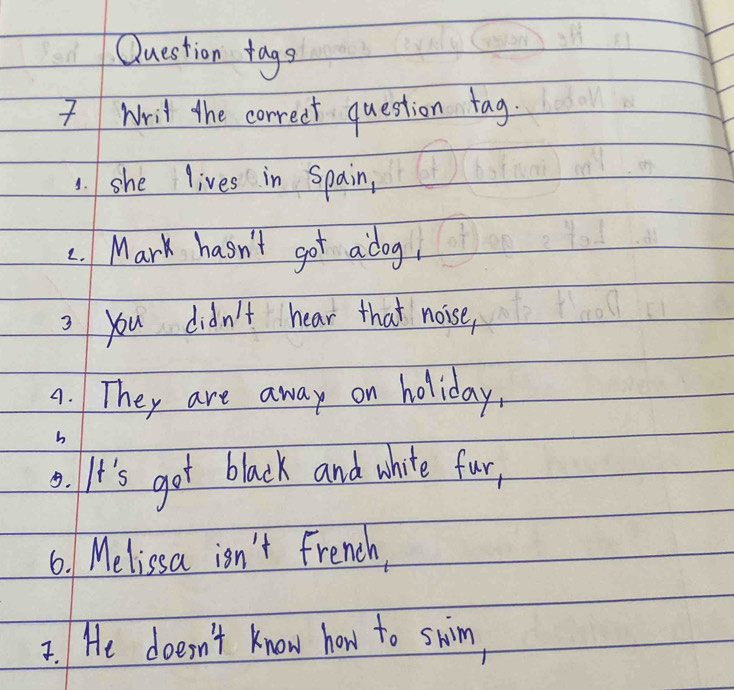 Question tags
7 Writ the correct question tag.
1. she lives in Spain,
2. Mark hasn't got a dog,
3 You didn't hear that noise,
4. They are away on holiday,
5. It's got black and white fur,
6. Melissa isn't French,
7. He doesn't know how to swim,